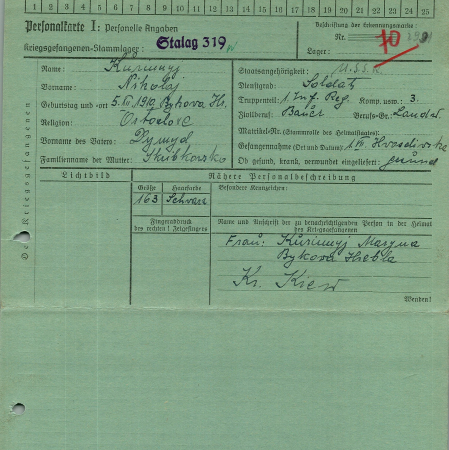 1 2 3 4 5 6 7 8 9 10 11 12 13 14 15 16 17 18 19 20 21 22 23 24 25
Personalkarte I: Personelle Angaben
Kriegsgefangenen-Stammlager: Stalag 319
Beschriftung der Erkennungsmarke
Nr.
Lager:
Name: Kurinnyj
Vorname: Nikolaj
Geburtstag und -ort: 5. XII 1910 Bykova Hr.
Religion: Ortodoxe
Vorname des Vaters: Dymyd
Familienname der Mutter:
Staatsangehörigkeit: U.S.S.R.
Dienstgrad: Soldat
Truppenteil: 1 Inf. Reg. Komp. usw.: 3.
Zivilberuf: Bauer Berufs-Gr.:
Matrikel-Nr. (Stammrolle des Heimatstaates):
Gefangennahme (Ort und Datum):
Ob gesund, krank, verwundet eingeliefert: gesund
Des Kriegsgefangenen
Lichtbild
Nähere Personalbeschreibung
Größe Haarfarbe Besondere Kennzeichen:
163 Schwarz
Fingerabdruck
des rechten ! Zeigefingers
Name und Anschrift der zu benachrichtigenden Person in der Heimat
des Kriegsgefangenen
Frau: Kurinnyj Maryna
Bykova Hrebla
Kr. Kiew
Wenden!